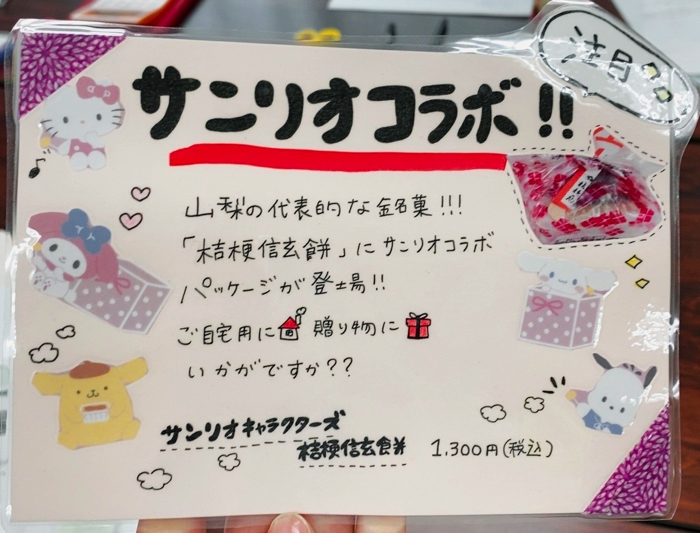 注目
サンリオコラボ!!
山梨の代表的な銘菓!!!
「桔梗信玄餅」にサンリオコラボ
パッケージが登場!!
ご自宅用に 贈り物に
いかがですか??
サンリオキャラクターズ
桔梗信玄餅 1,300円(税込)